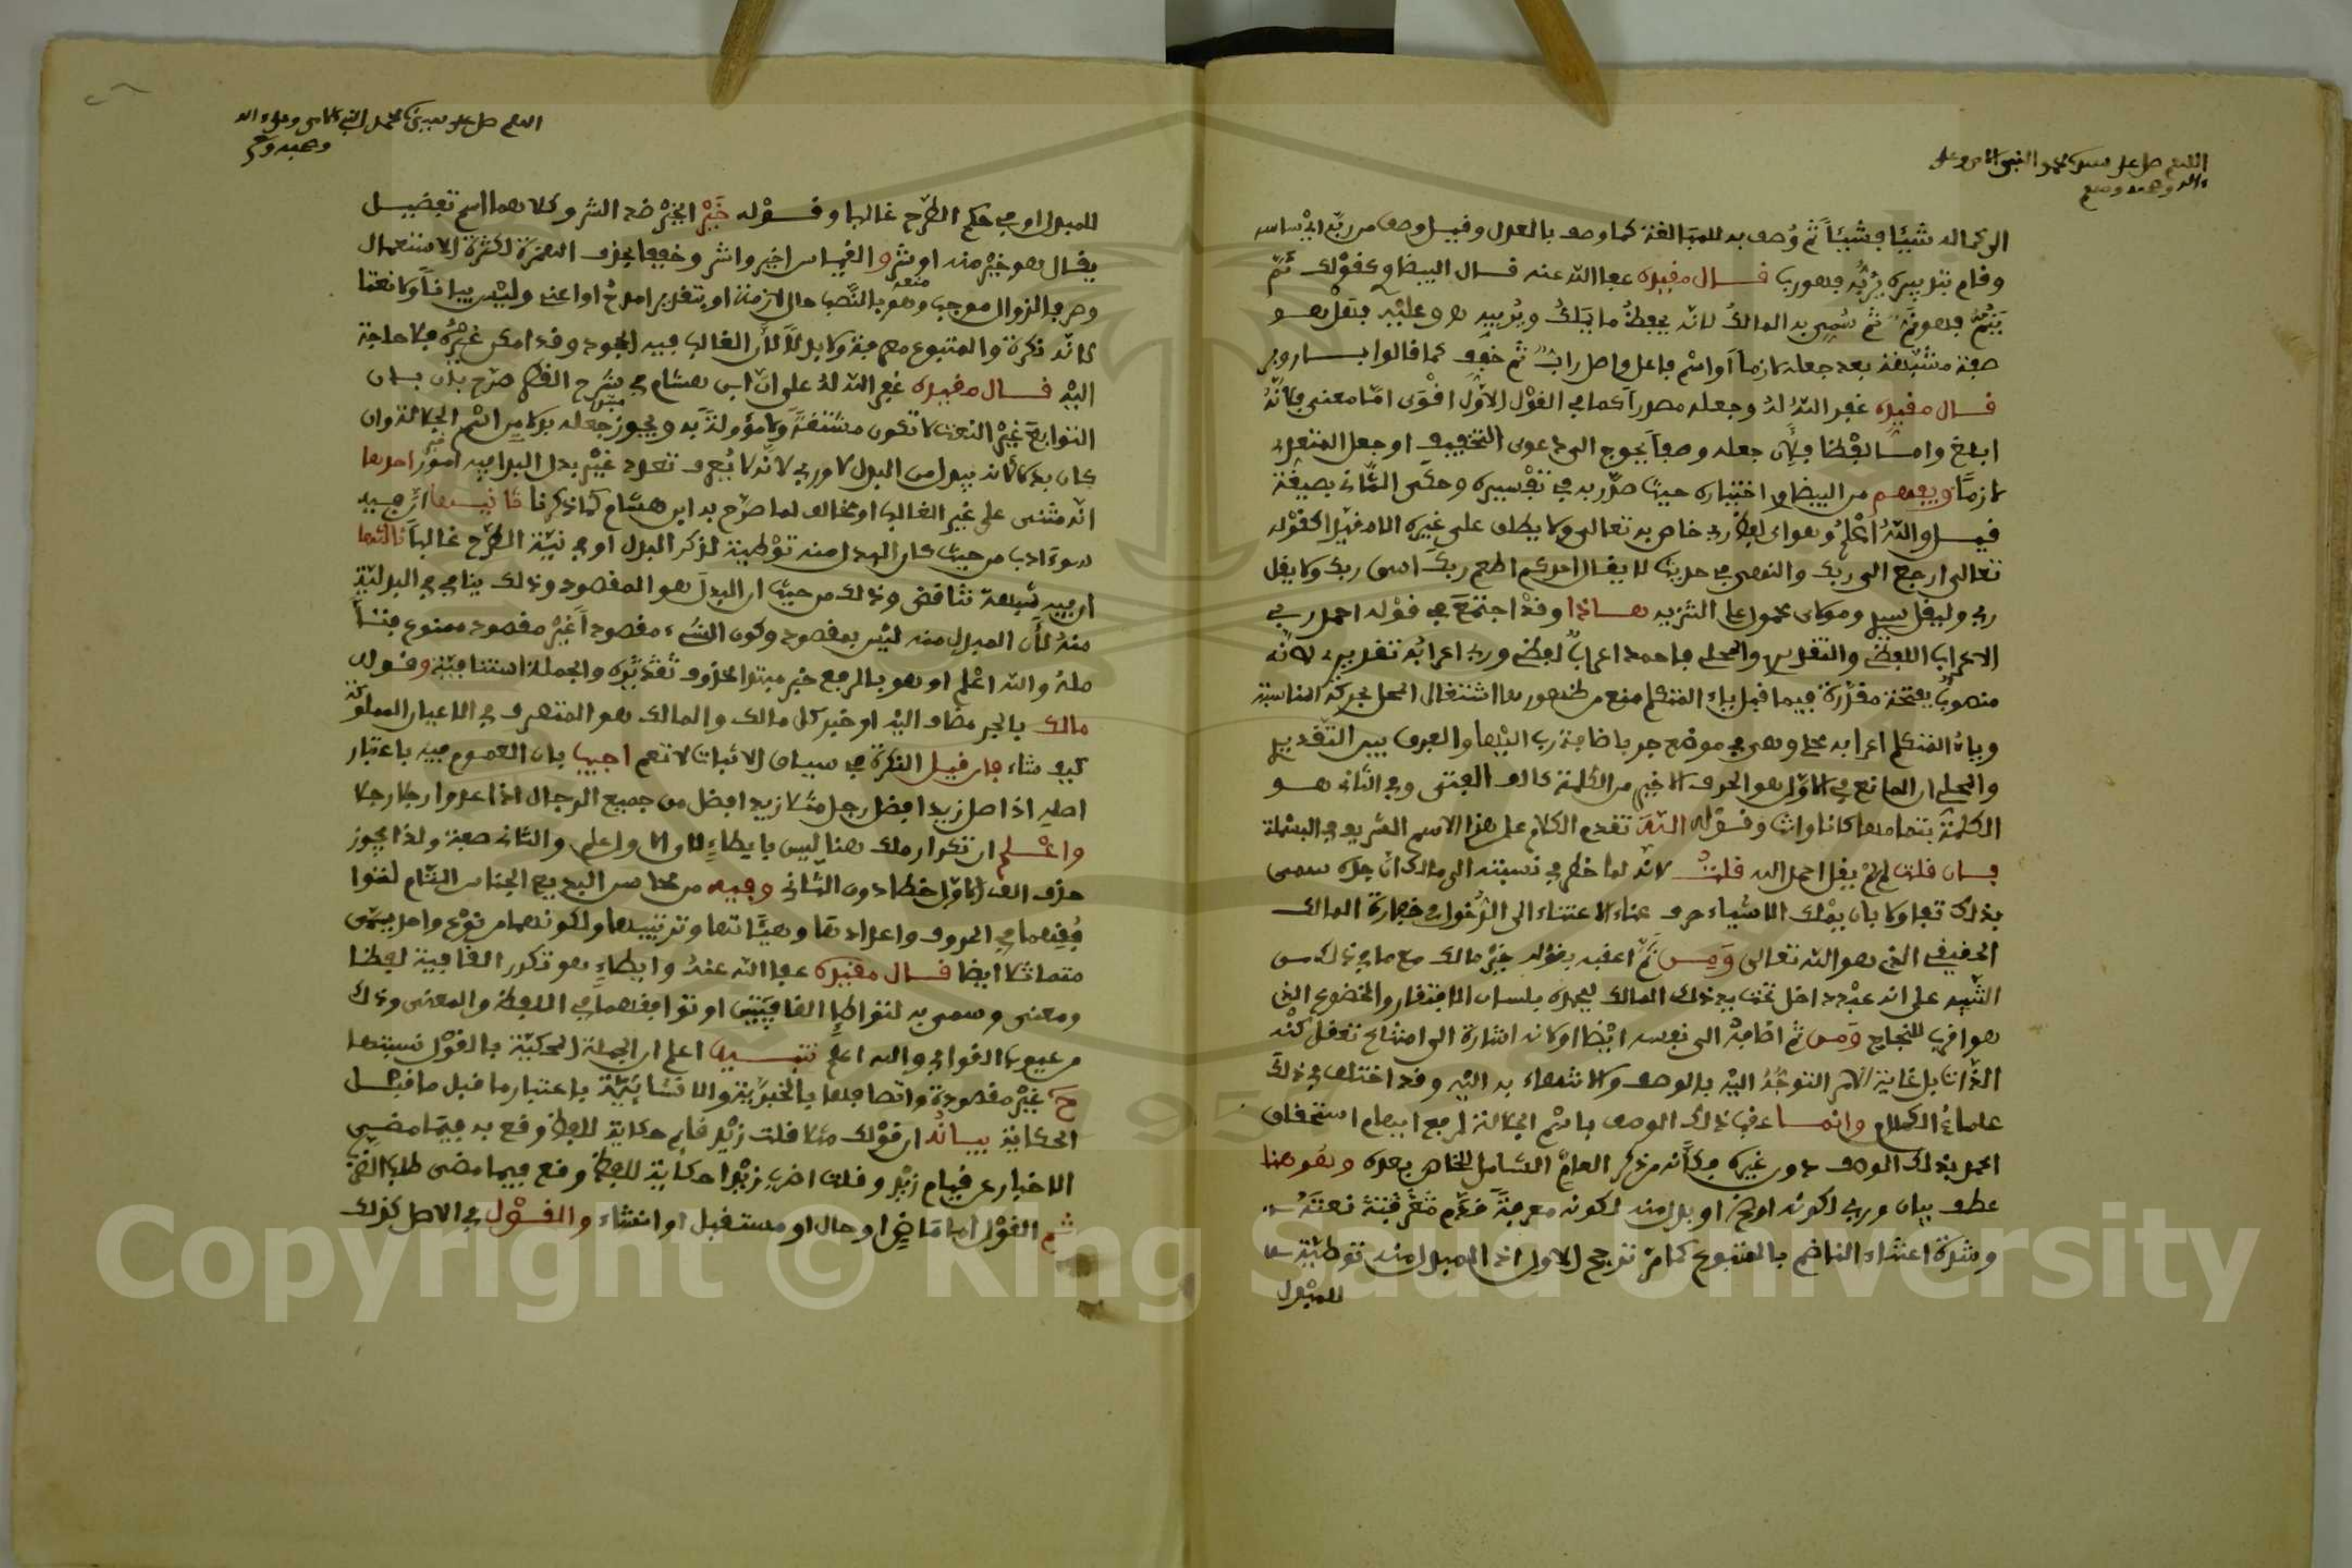 اللهم صل على سيدنا محمد النبي الامي وعلى
ءاله وصحبه وسلم
الى كماله شيئا فشيئاً ثم وُصف به للمبالغة كما وصف بالعدل وقيل وصف من ربّه اي ساسه
وقام بتدبيره يَرُبُّه فهو رب قال مقيده عفا الله عنه قال البيضاوي كقوْلك نَمّ
يَنُمّ فهو نَمّ ثم سُمِّي به المالكُ لانه يحفظ ما يملكُ ويُربيه هو وعليْه فهل هو
صفة مشبّهة بعد جعله لازماً او اسْم فاعل واصل رابّ ثم خفف كما قالوا بار وبر
قال مقيده غفر الله لهُ وجعله مصدراً كما في القوْل الاوّل اقْوى امّا معنى فلأنّهُ
ابلغ وامّا لفْظا فلأن جعله وصفاً يحوج الى دعوى التخفيف او جعل المتعدى
لازماً ويفهم من البيضاوي اختياره حيث صدّر به في تفسيره وحكى الثّاني بصيغة
قيل والله اعْلمُ وهو اى لفظ رب خاص به تعالى ولا يطلق على غيره الا مقيّدا كقوْله
تعالى ارجع الى ربك والنهي في حديث لا يقل احدكم اطعم ربك اسق ربك ولا يقل
ربي وليقل سيدي ومولاي محمول على التنزيه هاذا وقدْ اجتمعَ في قوْله احمد ربي
الاعراب اللفظي والتقديري والمحلي فاحمد اعرابُ لفظي وربي اعرابُه تقديري لانّه
منصوبُ بفتحة مقدّرة فيما قبل ياء المتكلم منع من ظهورها اشتغال المحل بحركة المناسبة
وياءُ المتكلم اعرابه محلي وهي في موضع جر باضافة رب اليْها والفرق بين التقديري
والمحلي ان المانع في الاوّل هو الحرف الاخير من الكلمة كالف الفتى وفي الثّاني هو
الكلمة بتمامها كانا وانت وقوْله اللّهَ تقدم الكلام على هذا الاسم الشريف في البسْملة
فان قلت لم لمْ يقل احمد الله قلتُ لانّه لما خطر في نسبته الى مالك انّ جدّه سمي
بذلك تفاولا بان يمْلك الاشياء صرف عناء الاعتناء الى الدّخول في خفارة المالك
الحقيقي الذي هو الله تعالى وَمِن ثمّ اعقبه بقوله خيْر مالك مع ما في ذلك من
التّنبيه على انه عبْد داخل تحت يد ذلك المالك ليحمده بلسان الافتقار والخضوع الذي
هو اقرب للنجاح وَمن ثمّ اضافهُ الى نفسه ايْضا او كانه اشارة الى امتناع تعقل كُنْه
الذّات بل غاية الامر التوجُّهُ اليْه بالوصف والانتهاء به اليْه وقد اختلف في ذلك
علماءُ الكلام وانما عقب ذلك الوصف باسْم الجلالة لرفع ايهام استحقاق
الحمد بذلك الوصف دون غيره فكأنّه من ذكر العامّ الشامل للخاص بعده وهُو هنا
عطف بيان وربي لكونه اوضح او بدل منه لكونه معرفةً
وشدة اعتناء الناظم بالمتبوع كما مرّ ترجح الاول اذ المبدل منه توطئة
للمبْدل
اللهم صل على سيدنا محمد النبي الامي وعلى ءاله
وصحبه وسلم
للمبدل او في حكم الطّرح غالبا وقوْله خَيْر الخيْر ضد الشر وكلاهما اسم تفضيل
يقال هو خيْر منه او شر والقياس اخير واشر وخففا بحذف الهمزة لكثرة الاستعمال
وصرفا لزوال موجب منعه وهو بالنّصب حال لازمة او بتقدير امدحُ او اعني وليْس بياناً ولا نعتا
لانّه نكرة والمتبوع معرفة ولا بدلاً لأن الغالب فيه الجمود وقد امكن غيْرُه فلا حاجة
اليْه قال مقيده غفر الله لهُ على انّ ابن هشام في شرح القطر صرّح بان
التوابع غيْر النعت لا تكون مشتقةً ولا مؤولةً به ويجوز جعله بدلا من اسْم الجلالة وان
كان بدلا لانه يبدل من البدل لا من ربي لانه لا يُعرف تعدد غيْر بدل البداء فيه امورٌ احدها
انّه مشى على غير الغالب او مخالف لما صرّح به ابن هشام كما ذكرنا ثانيها ان فيه
سوء ادب من حيث كان المبدل منه توْطئة لذكر البدل او في نيّة الطّرح غالباً ثالثها
ان فيه شبهة تناقض وذلك من حيث ان البدلَ هو المقصود وذلك ينافي في البدليّة
منهُ لأن المبدل منه ليْس بمقصود وكون الشيء مقصوداً غيْر مقصود ممنوع
والله اعْلم او هو بالرفع خبر مبتدا محذوف تقديره والجملة استئنافيّة وقوله
مالك بالجر مضاف اليْه او خير كل مالك والمالك هو المتصرف في الاعيان المملوكة
كيف شاء فان قيل النكرة في سياق الاثبات لا تعم اجيب بان العموم فيه باعتبار
اصله اذ اصل زيد افضل رجل مثلا زيد افضل من جميع الرجال اذا عدوا رجلا رجلا
واعْلم ان تكرار ملك هنا ليس بايطاءٍ لان الاول علم والثاني صفة ولذا يجوز
حذف الف الاوّل خطا دون الثاني وفيه من محاسن البديع الجناس التام
في الحروف واعدادها وهيئاتها وترتيبها ولكونهما من نوْع واحد يسمى
متماثلا ايضا قال مقيده عفا الله عنهُ وايطاءٍ هو تكرر القافية لفظا
ومعنى وسمي به لتواطئ القافيتين او توافقهما في اللفظ والمعنى وذلك
من عيوب القوافي والله اعلم تنبيه اعلم ان الجملة المحكيّة بالقوْل نسبتها
غيْر مقصودة واتصافها بالخبريّة والانشائيّة باعتبار ما قبل
الحكاية بيانُه ان قوْلك مثلا قلت زيْد قايم حكاية للفظ وقع به فيما مضى
الاخبار عن قيام زيْد وقلت اضرب زيْدا حكاية للفظ وقع فيما مضى طلبا
ثم القوْل اما مَاضٍ او حال او مستقبل او انشاء والقوْل في الاصل كذلك
Copyright © King Saud University